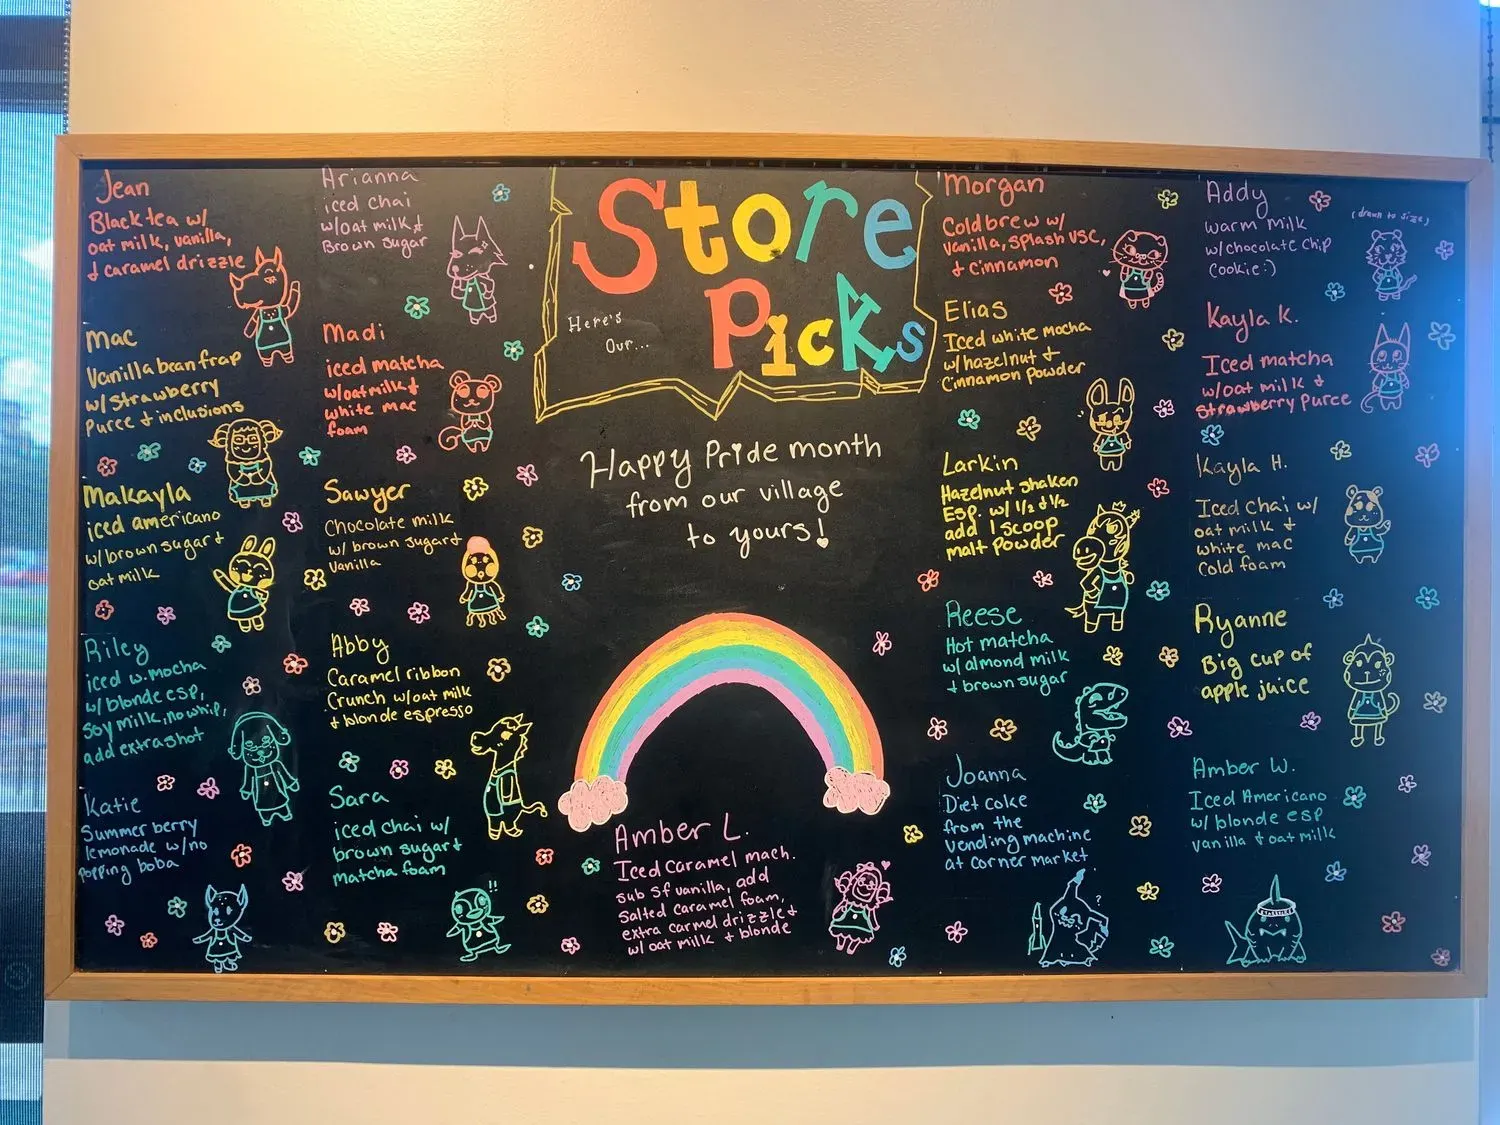 Jean
Black tea w/
oat milk, vanilla,
& caramel drizzle
Mac
Vanilla bean frap
w/ strawberry
puree & inclusions
Makayla
iced americano
w/ brown sugar &
oat milk
Riley
iced w. mocha
w/ blonde esp,
soy milk, no whip,
add extra shot
Katie
Summer berry
lemonade w/ no
popping boba
Arianna
iced chai
w/ oat milk &
Brown sugar
Madi
iced matcha
w/ oat milk &
white mac
foam
Sawyer
Chocolate milk
w/ brown sugar &
Vanilla
Abby
Caramel ribbon
Crunch w/ oat milk
& blonde espresso
Sara
iced chai w/
brown sugar &
matcha foam
!!
Store
Picks
Here's
Our...
Happy Pride month
from our village
to yours!
Amber L.
Iced Caramel mach.
sub sf vanilla, add
Salted Caramel foam,
extra carmel drizzle &
w/ oat milk & blonde
Morgan
Cold brew w/
Vanilla, splash VSC,
& Cinnamon
Elias
Iced white mocha
w/ hazelnut &
Cinnamon powder
Larkin
Hazelnut shaken
Esp. w/ 1/2 & 1/2
add 1 scoop
malt powder
Reese
Hot matcha
w/ almond milk
& brown sugar
Joanna
Diet coke
from the
vending machine
at corner market
?
Addy
(drawn to size)
warm milk
w/ chocolate chip
Cookie :)
Kayla K.
Iced matcha
w/ oat milk &
strawberry puree
Kayla H.
Iced chai w/
oat milk &
white mac
Cold foam
Ryanne
Big cup of
apple juice
Amber W.
Iced Americano
w/ blonde esp
vanilla & oat milk